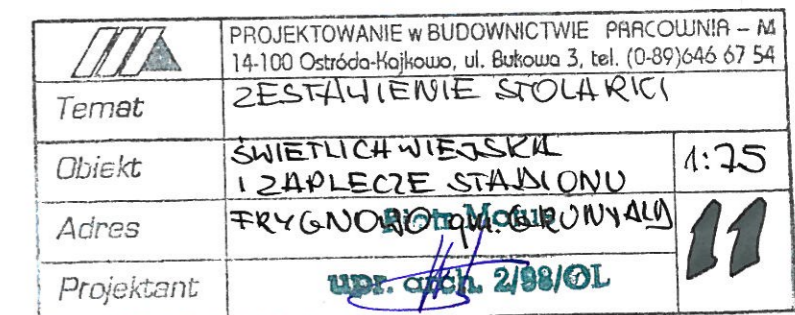 PROJEKTOWANIE w BUDOWNICTWIE PARCOWNIA – M
14-100 Ostróda-Kajkowo, ul. Bukowa 3, tel. (0-89)646 67 54
Temat
ZESTAWIENIE STOLARKI
Obiekt
ŚWIETLICA WIEJSKA
I ZAPLECZE STADIONU
1:75
Adres
FRYGNOWO gm. GRUNWALD
Piotr
11
Projektant
upr. arch. 2/98/OL